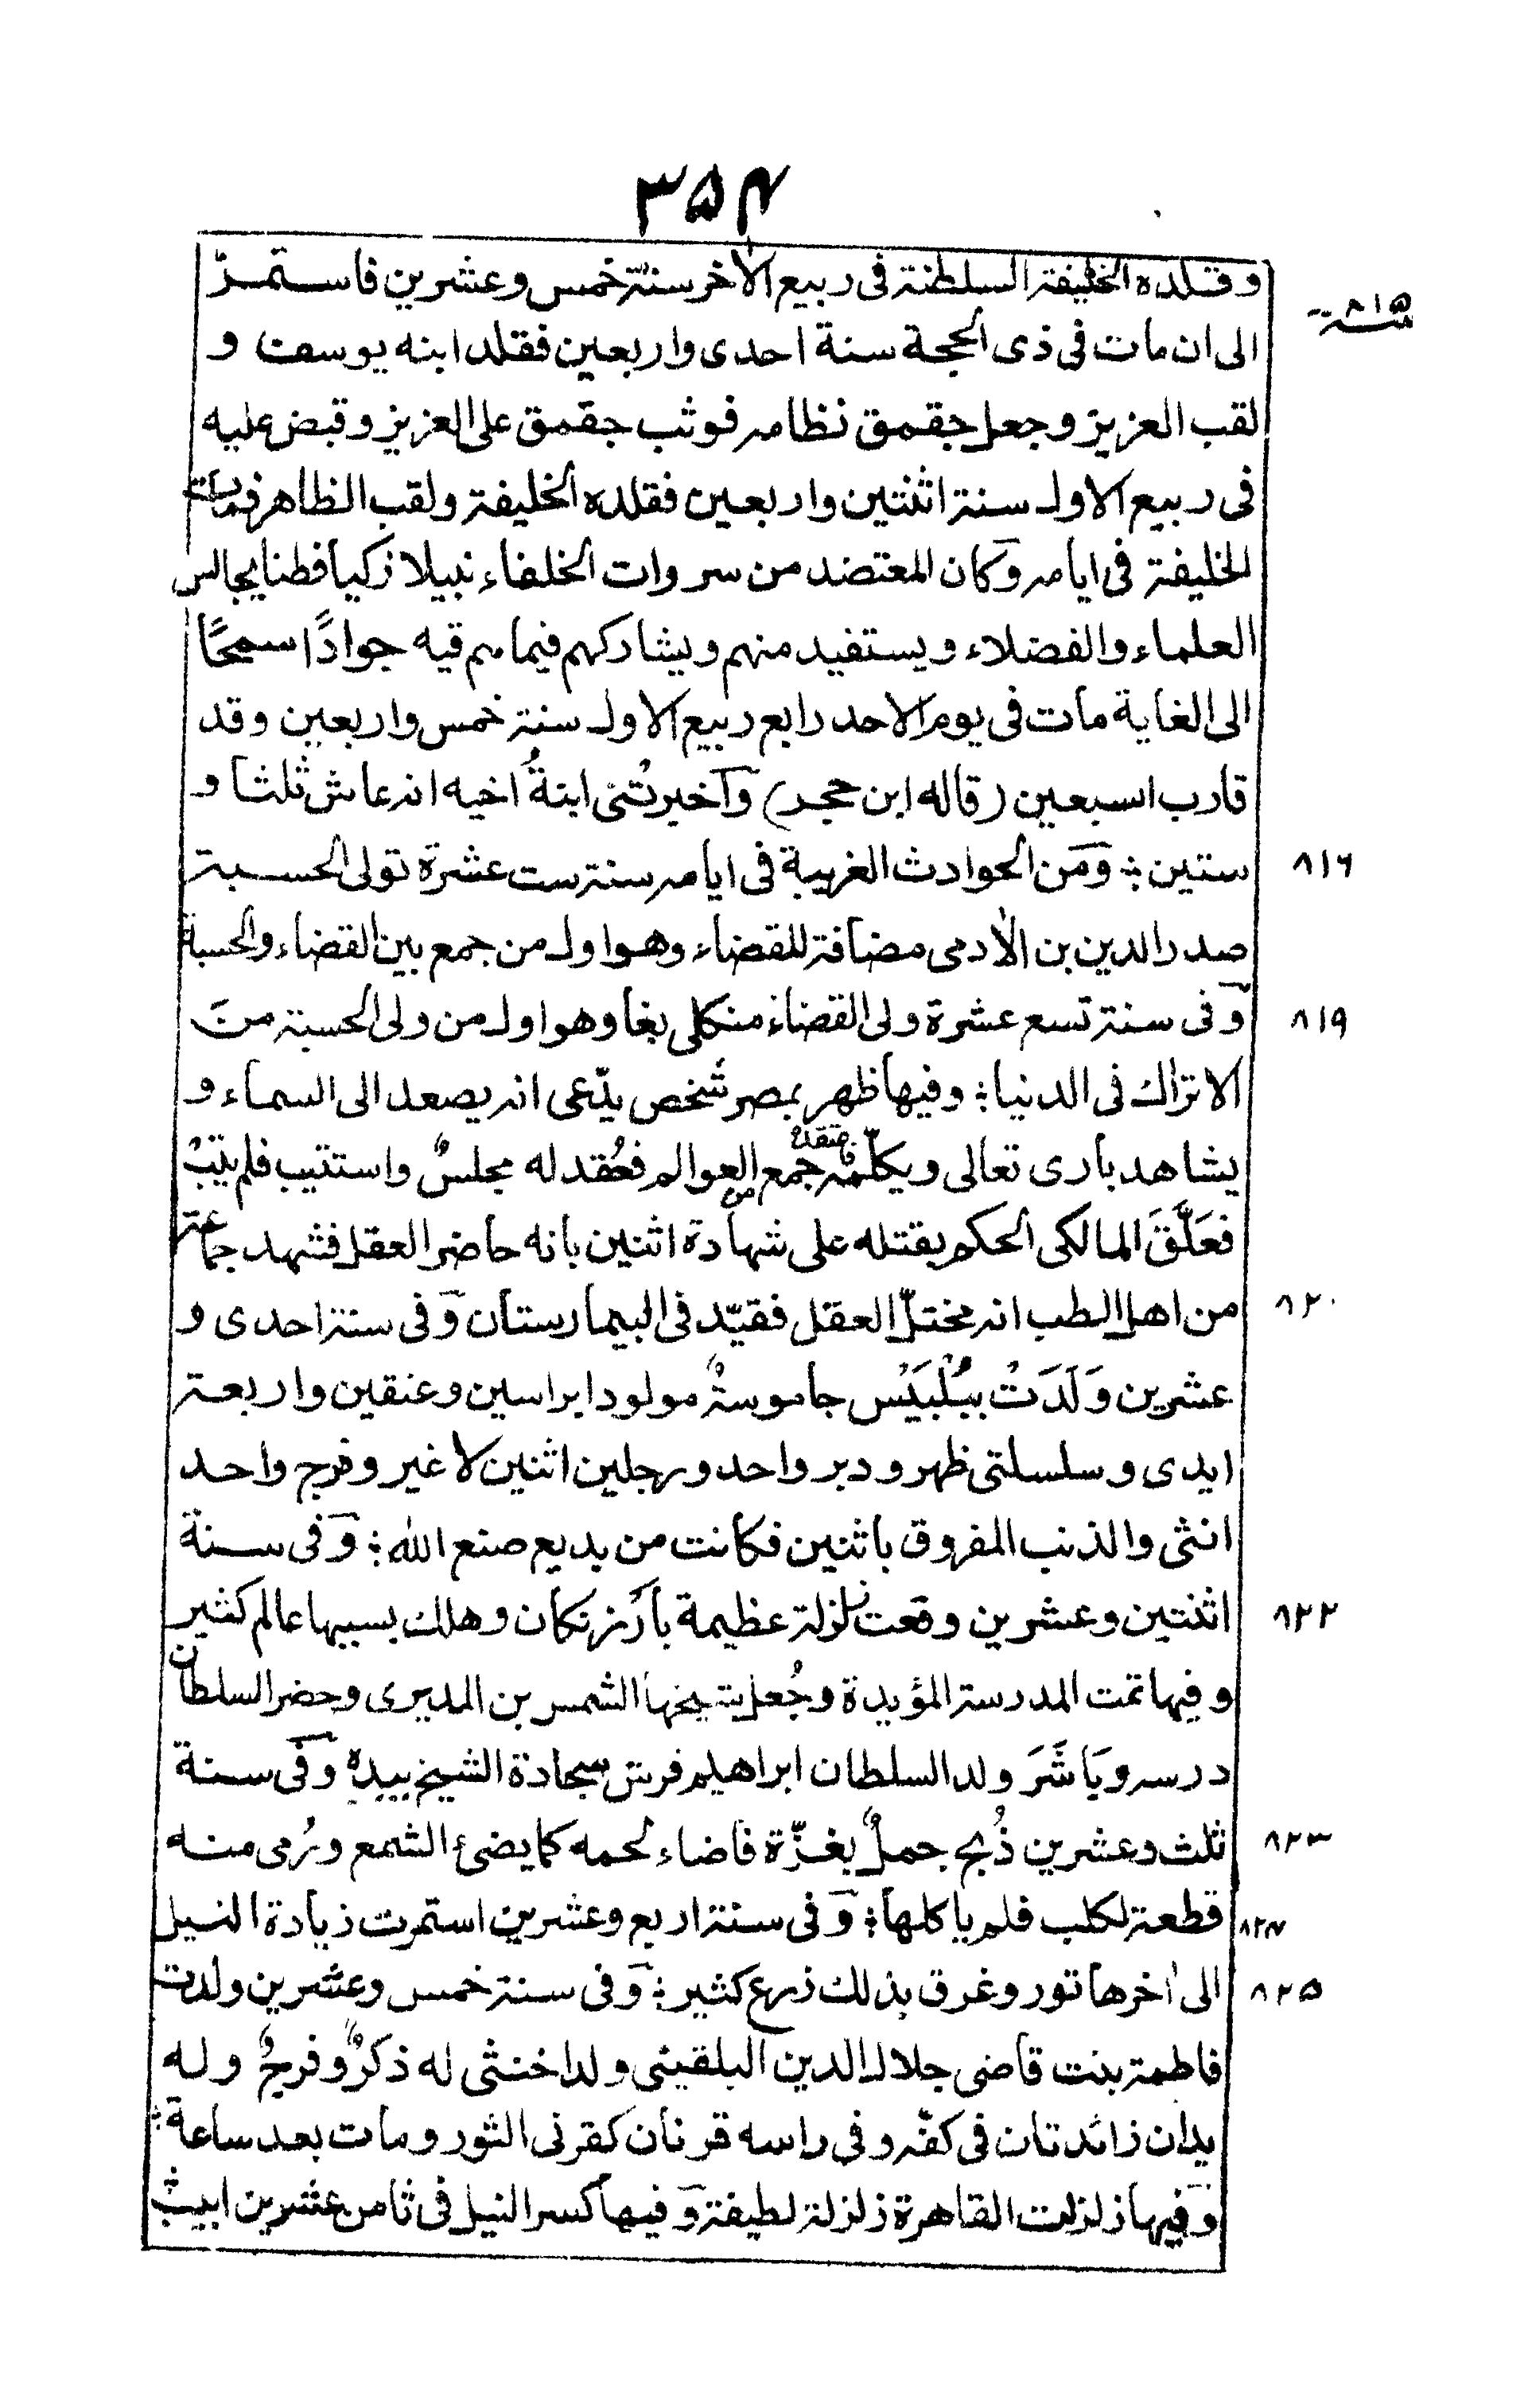 ٣٥٤
وقلده الخليفة السلطنة فى ربيع الاٰخر سنة خمس وعشرين فاستمرّ
سنة ٨١٥
الى ان مات فى ذى الحجة سنة احدى واربعين فقلد ابنه يوسف و
لقب العزيز وجعل جقمق نظامه فوثب جقمق على العزيز وقبض عليه
فى ربيع الاول سنة اثنتين واربعين فقلده الخليفة ولقب الظاهر فمات
الخليفة فى ايامه وكان المعتضد من سروات الخلفاء نبيلا زكيا فطنا يجالس
العلماء والفضلاء ويستفيد منهم ويشاركهم فيما هم فيه جوادًا سمحًا
الى الغاية مات فى يوم الاحد رابع ربيع الاول سنة خمس واربعين وقد
قارب السبعين (قاله ابن حجر) وآخبرتنى ابنةُ اخيه انه عاش ثلثا و
ستين ؛ ومن الحوادث الغريبة فى ايامه سنة ست عشرة تولى الحسبة
٨١٦
صدر الدين بن الاٰدمى مضافة للقضاء وهو اول من جمع بين القضاء والحسبة
وفى سنة تسع عشرة ولى القضاء منكلى بغا وهو اول من ولى الحسبة من
٨١٩
الاتراك فى الدنيا ؛ وفيها ظهر بمصر شخص يدّعى انه يصعد الى السماء و
يشاهد بارى تعالى ويكلّمه جمع العوالم فعُقد له مجلسٌ واستتيب فلم يتبْ
فعَلَّقَ المالكى الحكم بقتله على شهادة اثنين بانه حاضر العقل فشهد جماعة
من اهل الطب انه مختلّ العقل فقيّد فى البيمارستان وفى سنة احدى و
٨٢٠
عشرين وَلَدَتْ ببُلْبَيْس جاموسةٌ مولودا براسين وعنقين واربعة
ايدى وسلسلتى ظهر ودبر واحد ورجلين اثنين لا غير وفرج واحد
انثى والذنب المفروق باثنين فكانت من بديع صنع الله ؛ وفى سنة
اثنتين وعشرين وقعت زلزلة عظيمة بأرْزنكان وهلك بسببها عالم كثير
٨٢٢
وفيها تمت المدرسة المؤيدة وجُعل شيخها الشمس بن المديرى وحضر السلطان
درسه وبَاشَرَ ولد السلطان ابراهيم فرش سجادة الشيخ بيده وفى سنة
ثلث وعشرين ذُبح جملٌ بغزّة فاضاء لحمه كما يضئ الشمع ورُمى منه
٨٢٣
قطعة لكلب فلم ياكلها ؛ وفى سنة اربع وعشرين استمرت زيادة النيل
٨٢٤
الى اٰخرها تور وغرق بذلك زرع كثير ؛ وفى سنة خمس وعشرين ولدت
٨٢٥
فاطمة بنت قاضى جلال الدين البلقينى ولدا خنثى له ذكرٌ وفرجٌ وله
يدان زائدتان فى كفّه وفى راسه قرنان كقرنى الثور ومات بعد ساعة ؛
وفيها زلزلت القاهرة زلزلة لطيفة وفيها كسر النيل فى ثامن عشرين ابيب